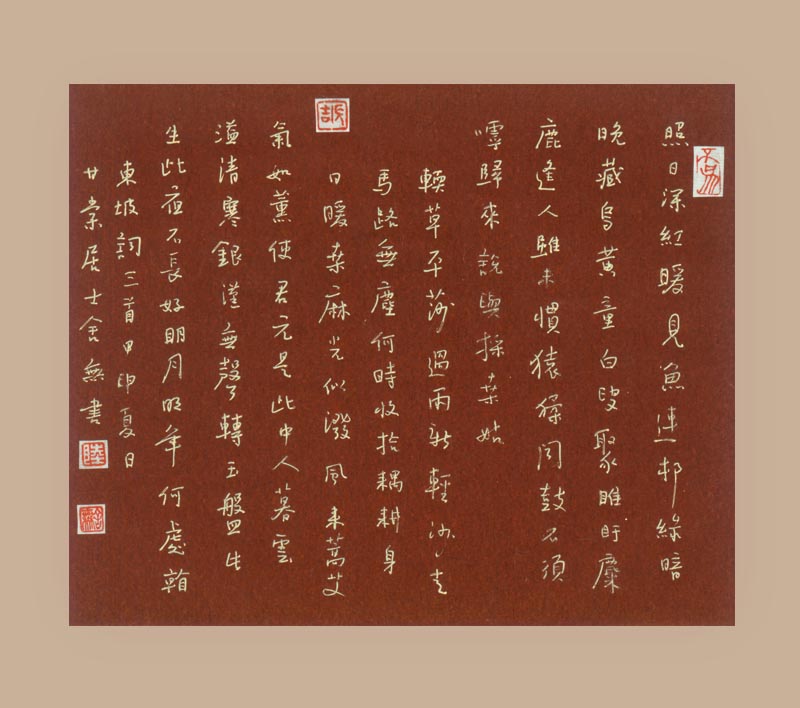 照日深紅暖見魚連邨綠暗
晚藏烏黃童白叟聚睢盱麋
鹿逢人雖未慣猿猱聞鼓不須
嘑歸來說與採桑姑
輭草平莎過雨新輕沙走
馬路無塵何時收拾耦耕身
日暖桑麻光似潑風來蒿艾
氣如薰使君元是此中人暮雲
溢清寒銀漢無聲轉玉盤此
生此夜不長好明月明年何處看
東坡詞三首甲申夏日
廿棠居士舍無書